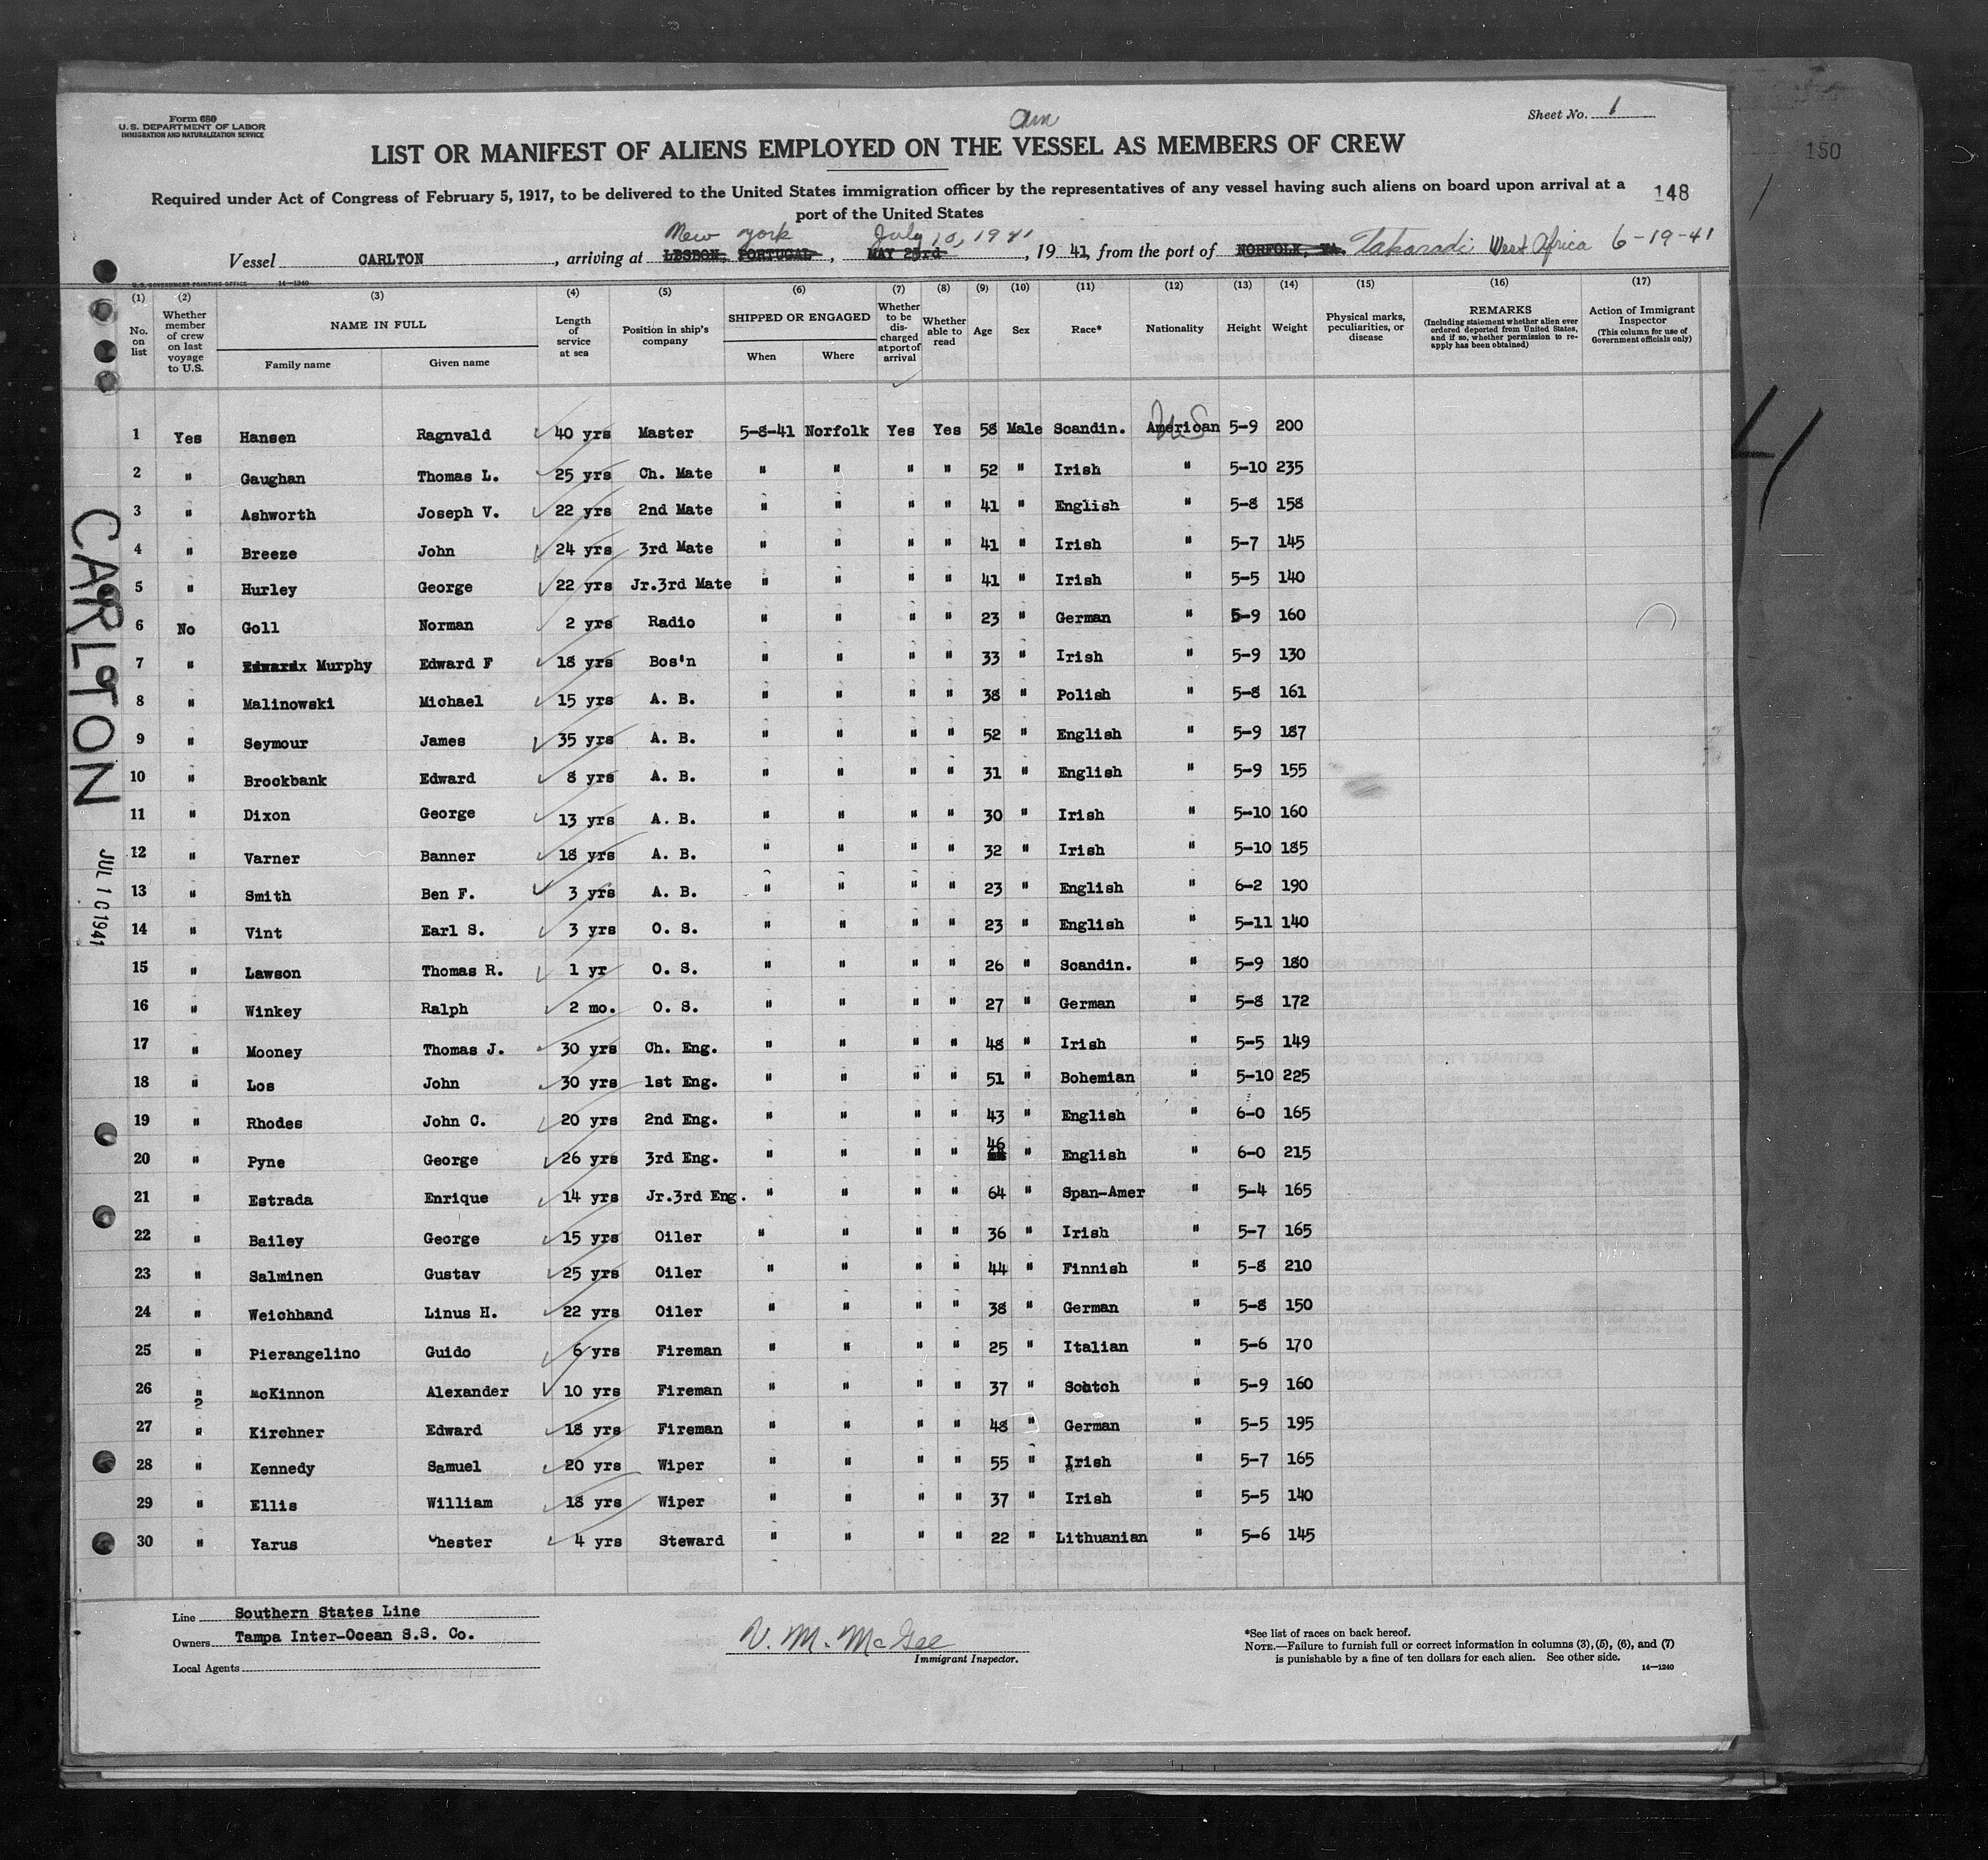 Form 680
U.S. DEPARTMENT OF LABOR
IMMIGRATION AND NATURALIZATION SERVICE
Am
Sheet No. 1
LIST OR MANIFEST OF ALIENS EMPLOYED ON THE VESSEL AS MEMBERS OF CREW
150
Required under Act of Congress of February 5, 1917, to be delivered to the United States immigration officer by the representatives of any vessel having such aliens on board upon arrival at a
port of the United States
148
New York July 10, 1941
Vessel CARLTON, arriving at LISBON, PORTUGAL, MAY 23rd, 1941, from the port of NORFOLK, VA. Takoradi West Africa 6-19-41
U.S. GOVERNMENT PRINTING OFFICE 14—1240
(1) (2) (3) (4) (5) (6) (7) (8) (9) (10) (11) (12) (13) (14) (15) (16) (17)
No. on list | Whether member of crew on last voyage to U.S. | NAME IN FULL Family name Given name | Length of service at sea | Position in ship's company | SHIPPED OR ENGAGED When Where | Whether to be discharged at port of arrival | Whether able to read | Age | Sex | Race* | Nationality | Height | Weight | Physical marks, peculiarities, or disease | REMARKS (Including statement whether alien ever ordered deported from United States, and if so, whether permission to reapply has been obtained) | Action of Immigrant Inspector (This column for use of Government officials only)
1 Yes Hansen Ragnvald 40 yrs Master 5-8-41 Norfolk Yes Yes 58 Male Scandin. American US 5-9 200
2 " Gaughan Thomas L. 25 yrs Ch. Mate " " " " 52 " Irish " 5-10 235
3 " Ashworth Joseph V. 22 yrs 2nd Mate " " " " 41 " English " 5-8 158
4 " Breeze John 24 yrs 3rd Mate " " " " 41 " Irish " 5-7 145
5 " Hurley George 22 yrs Jr.3rd Mate " " " " 41 " Irish " 5-5 140
6 No Goll Norman 2 yrs Radio " " " " 23 " German " 5-9 160
7 " Edwardx Murphy Edward F 18 yrs Bos'n " " " " 33 " Irish " 5-9 130
8 " Malinowski Michael 15 yrs A. B. " " " " 38 " Polish " 5-8 161
9 " Seymour James 35 yrs A. B. " " " " 52 " English " 5-9 187
10 " Brockbank Edward 8 yrs A. B. " " " " 31 " English " 5-9 155
11 " Dixon George 13 yrs A. B. " " " " 30 " Irish " 5-10 160
12 " Varner Banner 18 yrs A. B. " " " " 32 " Irish " 5-10 185
13 " Smith Ben F. 3 yrs A. B. " " " " 23 " English " 6-2 190
14 " Vint Earl S. 3 yrs O. S. " " " " 23 " English " 5-11 140
15 " Lawson Thomas R. 1 yr O. S. " " " " 26 " Scandin. " 5-9 180
16 " Winkey Ralph 2 mo. O. S. " " " " 27 " German " 5-8 172
17 " Mooney Thomas J. 30 yrs Ch. Eng. " " " " 48 " Irish " 5-5 149
18 " Los John 30 yrs 1st Eng. " " " " 51 " Bohemian " 5-10 225
19 " Rhodes John C. 20 yrs 2nd Eng. " " " " 43 " English " 6-0 165
20 " Pyne George 26 yrs 3rd Eng. " " " " 46 " English " 6-0 215
21 " Estrada Enrique 14 yrs Jr.3rd Eng. " " " " 64 " Span-Amer " 5-4 165
22 " Bailey George 15 yrs Oiler " " " " 36 " Irish " 5-7 165
23 " Salminen Gustav 25 yrs Oiler " " " " 44 " Finnish " 5-8 210
24 " Weichhand Linus H. 22 yrs Oiler " " " " 38 " German " 5-8 150
25 " Pierangelino Guido 6 yrs Fireman " " " " 25 " Italian " 5-6 170
26 " McKinnon Alexander 10 yrs Fireman " " " " 37 " Scotch " 5-9 160
2
27 " Kirchner Edward 18 yrs Fireman " " " " 48 " German " 5-5 195
28 " Kennedy Samuel 20 yrs Wiper " " " " 55 " Irish " 5-7 165
29 " Ellis William 18 yrs Wiper " " " " 37 " Irish " 5-5 140
30 " Yarus Chester 4 yrs Steward " " " " 22 " Lithuanian " 5-6 145
CARLTON
JUL 10 1941
Line Southern States Line
Owners Tampa Inter-Ocean S.S. Co.
Local Agents
V. M. McGee
Immigrant Inspector.
*See list of races on back hereof.
NOTE.—Failure to furnish full or correct information in columns (3), (5), (6), and (7)
is punishable by a fine of ten dollars for each alien. See other side.
14—1240